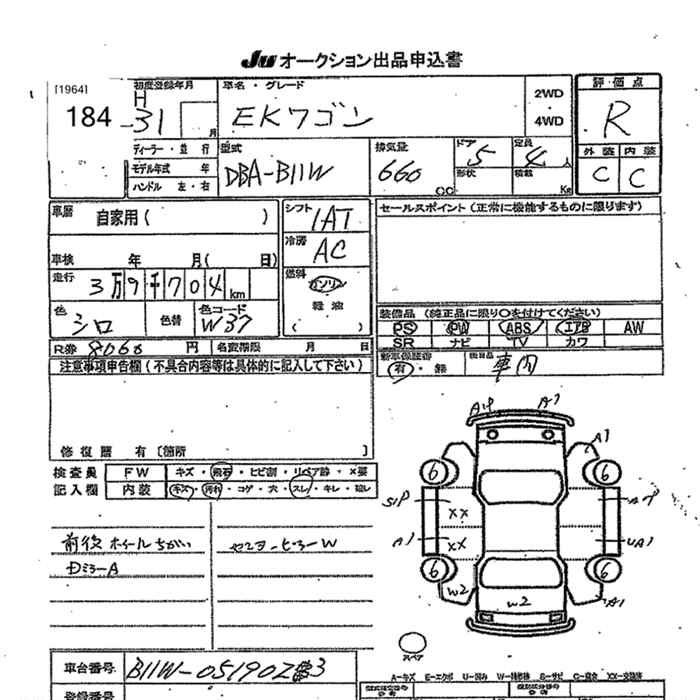 JU オークション出品申込書
[1964]
184
初度登録年月
H
31 月
車名・グレード
EKワゴン
2WD
・
4WD
評価点
R
ディーラー・並行
モデル年式 年
ハンドル 左・右
型式
DBA-B11W
排気量
660 CC
ドア
5
形状
定員
4 人
積載 Kg
外装 内装
C C
車歴 自家用( )
シフト
IAT
セールスポイント(正常に機能するものに限ります)
冷房
AC
車検 年 月( 日)
走行
3万9千704km
燃料
ガソリン
軽油
( )
色
シロ
色替
色コード
W37
装備品(純正品に限り○を付けてください)
PS PW ABS エアB AW
SR ナビ TV カワ
R券 8060 円 名変期限 月 日
新車保証書
有・無
後日品
車内
注意事項申告欄(不具合内容等は具体的に記入して下さい)
修復歴 有〔箇所 〕
検査員 FW キズ・飛石・ヒビ割・リペア跡・X要
記入欄 内装 キズ・汚れ・コゲ・穴・スレ・キレ・
前後ホイールちがい
センターピラーW
A1
A1
6 6
S1P
XX
XX
A1
UA1
6 6
W2
W2
A1
スペア
A-キズ E-エクボ U-凹み W-補修跡 S-サビ C-腐食 XX-交換済
車台番号 B11W-051902
登録番号